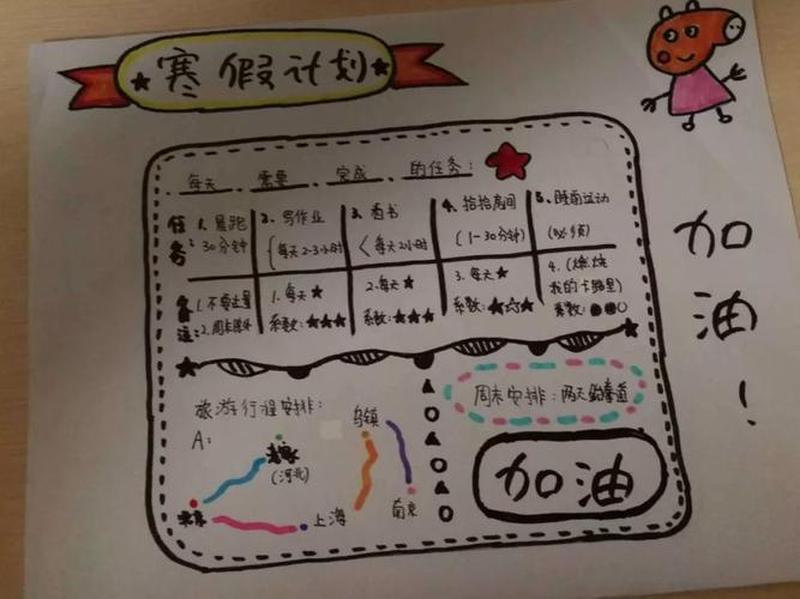 寒假计划
每天 需要 完成 的任务:
任务:
1. 晨跑
30分钟
2. 写作业
(每天2-3小时
3. 看书
<每天2小时
4. 拾拾房间
(1-30分钟)
5. 睡前运动
备注:
1. 不要过量
2. 周末除外
1. 每天★
系数:★★★
2. 每天★
系数:★★★
3. 每天★
系数:★☆☆
4. (燃烧
我的卡路里)
系数:●●○
旅游行程安排:
A:
(河北)
北京
上海
乌镇
南京
周末安排:两天跆拳道
加油
加
油
!